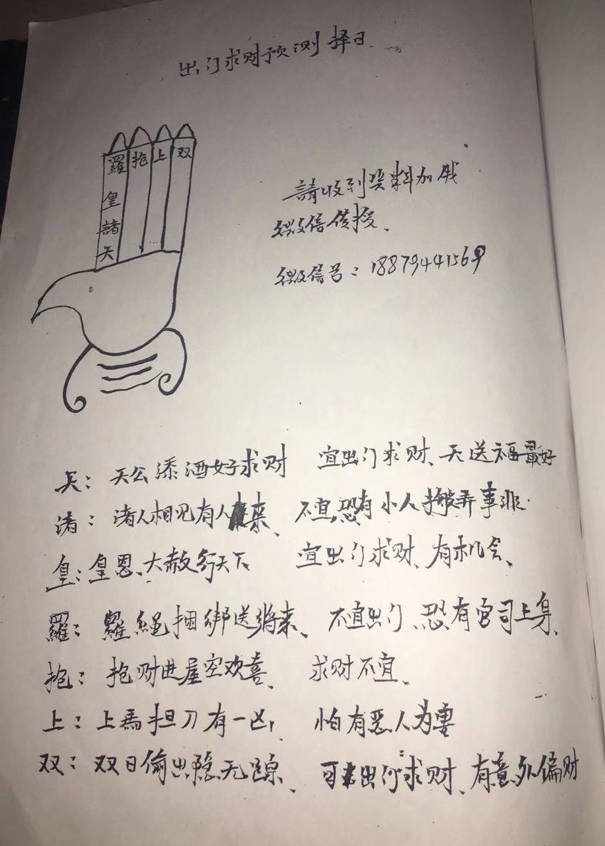 出门求财预测择日
羅 抱 上 双
皇
諸
天
請收到资料加我
微信传授、
微信号：18879441569
天：天公添酒好求财 宜出门求财、天送福最好
渚：渚人相见有人来、不宜恐有小人搬弄事非.
皇：皇恩、大赦行天下 宜出门求财、有机会、
羅：羅绳捆绑送将来、不宜出门、恐有官司上身、
抱：抱财进屋空欢喜、求财不宜、
上：上馬担刀有一凶，怕有恶人为妻
双：双日偷出隐无踪、可出门求财、有意外偏财